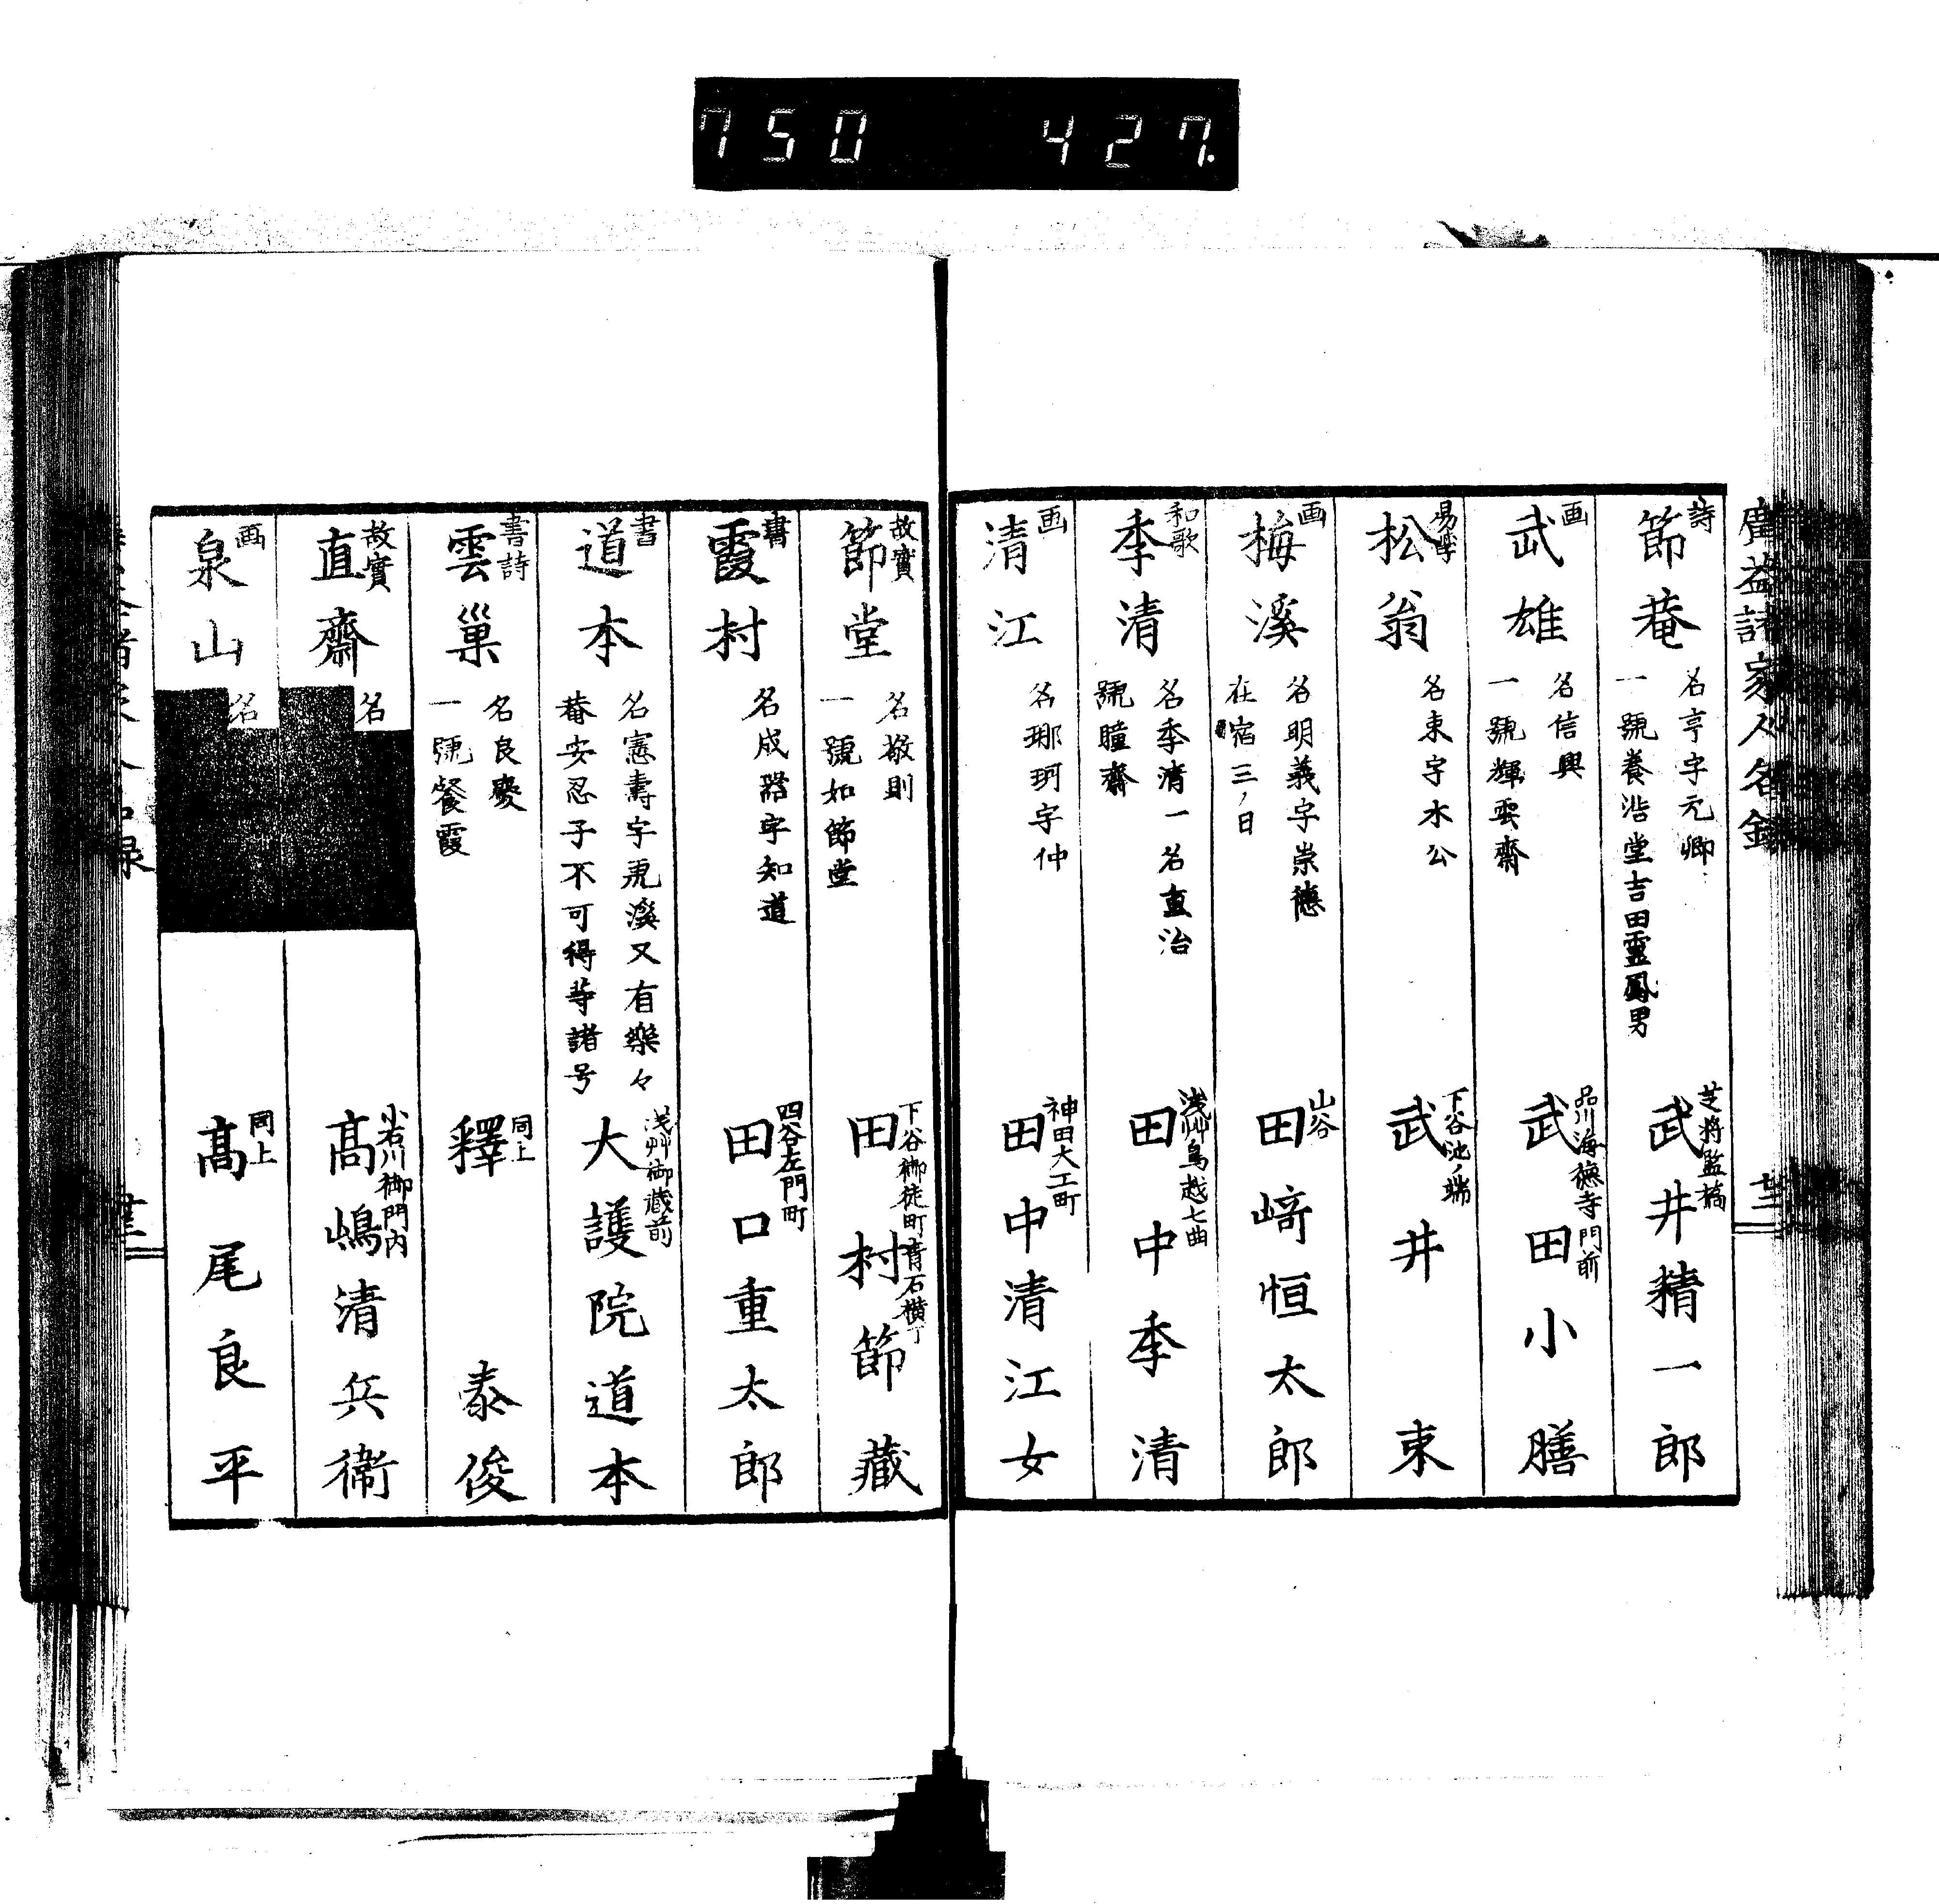 750 427.
廣益諸家人名録
詩
節菴
名亨字元卿
一號養浩堂吉田靈鳳男
芝将監橋
武井精一郎
画
武雄
名信興
一號輝雲齋
品川海徳寺門前
武田小膳
易學
松翁
名東字木公
下谷池ノ端
武井東
画
梅溪
名明義字崇德
在宿三ノ日
山谷
田﨑恒太郎
和歌
季清
名季清一名直治
號瞳齋
浅艸鳥越七曲
田中季清
画
清江
名瑯玡字仲
神田大工町
田中清江女
故實
節堂
名敬則
一號如節堂
下谷御徒町青石横丁
田村節藏
書
霞村
名成器字知道
四谷左門町
田口重太郎
書
道本
名憲壽字乕溪又有樂々
菴安忍子不可得等諸号
浅艸御藏前
大護院道本
書詩
雲巢
名良慶
一號餐霞
同上
釋泰俊
故實
直齋
名
小石川御門内
髙嶋清兵衞
画
泉山
名
同上
髙尾良平